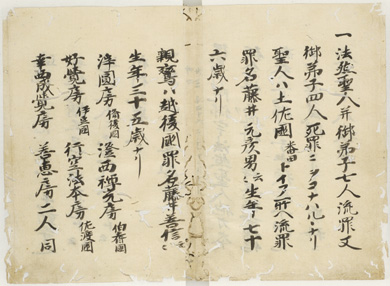 一法然聖人并御弟子七人流罪又
御弟子四人死罪ニヲコナハルヽナリ
聖人ハ土佐國番田トイフ所ヘ流罪
罪名藤井元彦男云々生年七十
六歳ナリ
親鸞ハ越後國罪名藤井善信云々
生年三十五歳ナリ
浄圓房備後國澄西禅光房伯耆國
好覺房伊豆國行空法本房佐渡國
幸西成覺房善惠房二人同